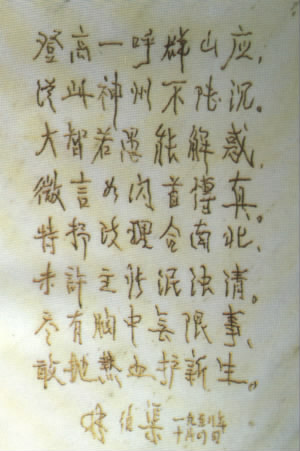 登高一呼群山应，
从此神州不陆沉。
大智若愚能解惑，
微言如闪首傳真。
理合南北，
未許主泯浊清。
尽有胸中无限事，
敢抛热血护新生。
林伯渠
一九五八年
十月四日